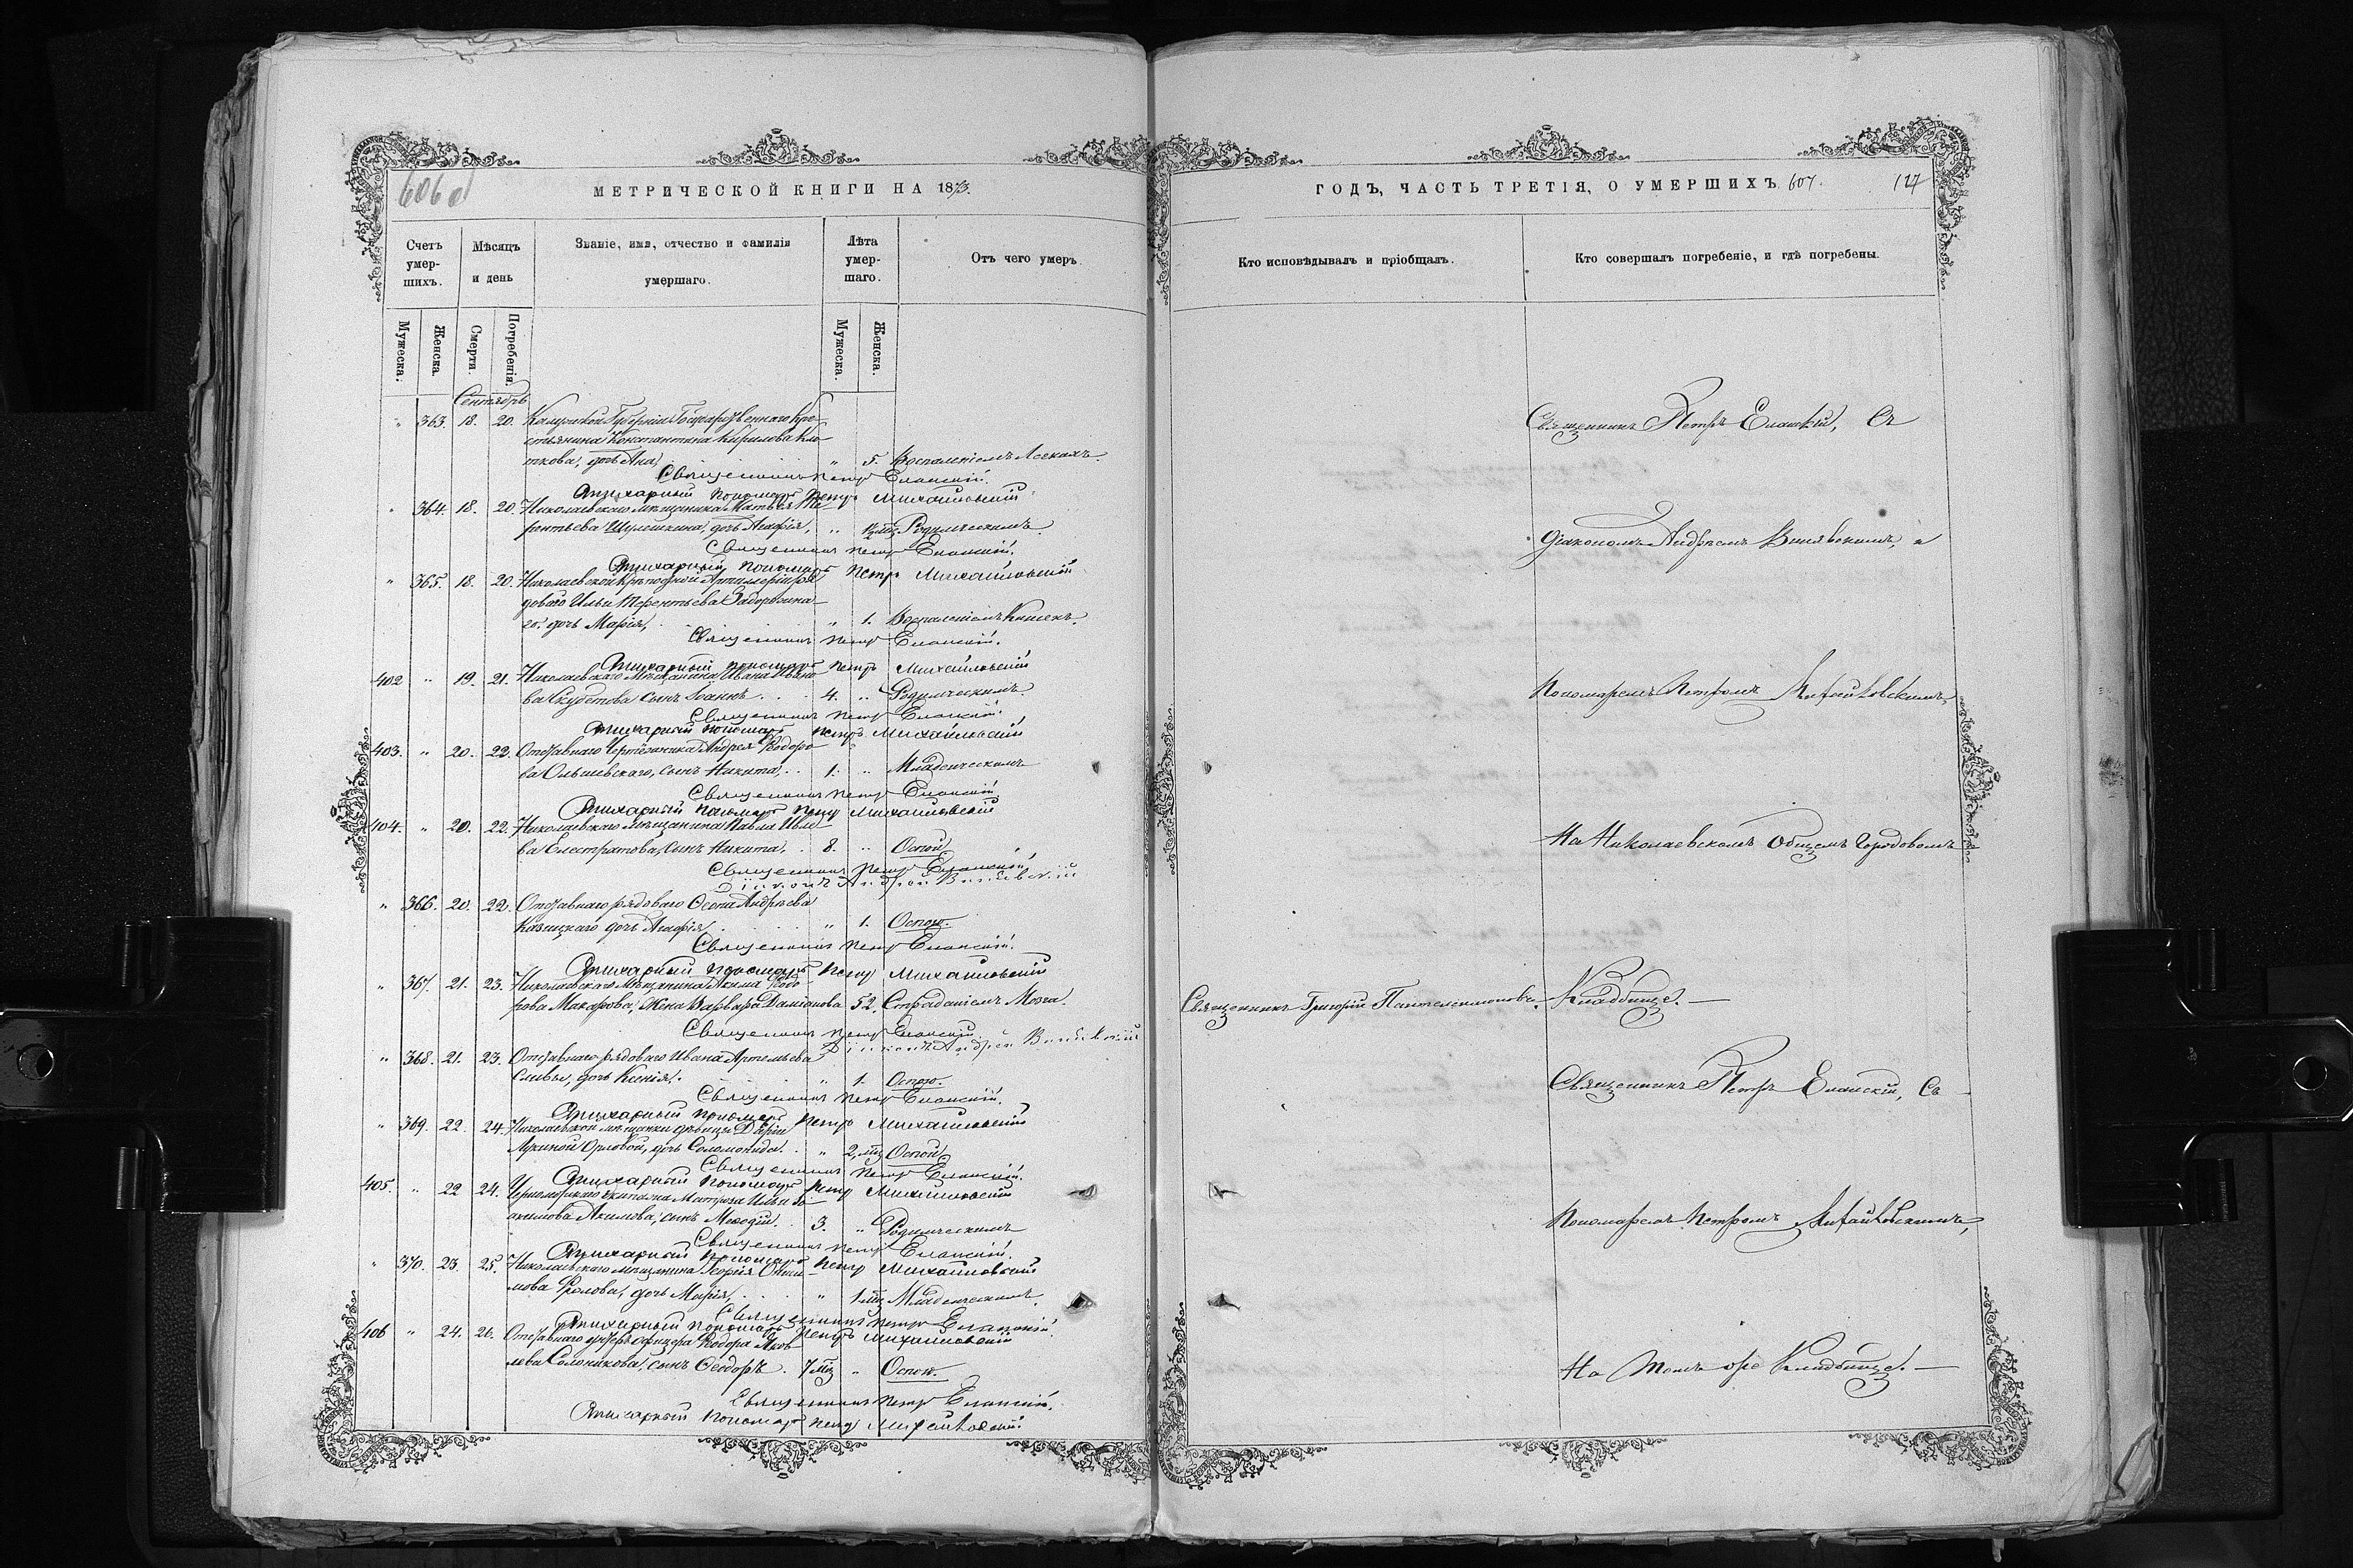 606 об
МЕТРИЧЕСКОЙ КНИГИ НА 1873.
Счетъ умер-шихъ.
Мѣсяцъ и день
Званіе, имя, отчество и фамилія умершаго.
Лѣта умер-шаго.
Отъ чего умеръ.
Мужеска.
Женска.
Смерти.
Погребенія.
Мужеска.
Женска.
Сентябрь
" 363. 18. 20. Калужской Губерніи Государственнаго кре-
стьянина Константина Кирилова
дочь Ана, " 5. Воспаленіемъ Легкихъ.
Священникъ Петръ Еланскій.
Стихарный пономарь Петръ Михайловскій
" 364. 18. 20. Николаевскаго мѣщанина Матвѣя Те-
рентьева Шулешкина, дочь Агафія, " Родимческимъ.
Священникъ Петръ Еланскій.
Стихарный пономарь Петръ Михайловскій
" 365. 18. 20. Николаевской крѣпостной Артиллеріи ря-
доваго Ильи Терентьева Задорожна-
го дочь Марія, " 1. Воспаленіемъ Кишекъ.
Священникъ Петръ Еланскій.
Стихарный пономарь Петръ Михайловскій
402 " 19. 21. Николаевскаго Мѣщанина Ивана Ивано-
ва Скудетова сынъ Іоаннъ. 4. " Родимческимъ.
Священникъ Петръ Еланскій.
Стихарный пономарь Петръ Михайловскій
403. " 20. 22. Отставнаго Андрея Ѳеодоро-
ва Ольшевскаго, сынъ Никита, 1. " Младенческимъ
Священникъ Петръ Еланскій
Стихарный пономарь Петръ Михайловскій
404. " 20. 22. Николаевскаго мѣщанина Павла
ва Елестратова, сынъ Никита, 8. " Оспой
Священникъ Петръ Еланскій
Діаконъ Андрей Винявскій
" 366. 20. 22. Отставнаго рядоваго Ѳеона Андрѣева
Казицкаго дочь Агафія, " 1. Оспою.
Священникъ Петръ Еланскій.
Стихарный пономарь Петръ Михайловскій
" 367. 21. 23. Николаевскаго Мѣщанина Акима Ѳеодо-
рова Макарова, Жена Варвара Даміанова 52. Страданіемъ Мозга.
Священникъ Петръ Еланскій.
Діаконъ Андрей Винявскій
" 368. 21. 23. Отставнаго рядоваго Ивана Артемьева
Сливы, дочь Ксенія. " 1. Оспою.
Священникъ Петръ Еланскій.
Стихарный пономарь Петръ Михайловскій
" 369. 22. 24. Николаевской мѣщанки дѣвицы Даріи
Орловой, дочь Соломонида. " 2 мц Оспой
Священникъ Петръ Еланскій.
Стихарный пономарь Петръ Михайловскій
405. " 22 24. Черноморскаго экипажа Матроза Ильи
Акимова, сынъ Меѳодій. 3. " Родимческимъ
Священникъ Петръ Еланскій.
Стихарный пономарь Петръ Михайловскій
" 370. 23. 25. Николаевскаго мѣщанина Георгія Ониси-
мова Фролова, дочь Марія, " 1 мц Младенческимъ.
Священникъ Петръ Еланскій.
Стихарный пономарь Петръ Михайловскій
406 " 24. 26. Отставнаго унтеръ офицера Ѳеодора Яков-
лева Солоникова, сынъ Ѳеодоръ. 7 мц " Оспою.
Священникъ Петръ Еланскій.
Стихарный пономарь Петръ Михайловскій
ГОДЪ, ЧАСТЬ ТРЕТІЯ, О УМЕРШИХЪ. 607. 127
Кто исповѣдывалъ и пріобщалъ.
Кто совершалъ погребеніе, и гдѣ погребены.
Священникъ Петръ Еланскій, Съ
Діакономъ Андреемъ Винявскимъ, и
Пономаремъ Петромъ Михайловскимъ,
На Николаевскомъ Общемъ Городовомъ
Священникъ Григорій Пантелеимоновъ.
Кладбище.—
Священникъ Петръ Еланскій, Съ
Пономаремъ Петромъ Михайловскимъ,
На томъ же Кладбище.—